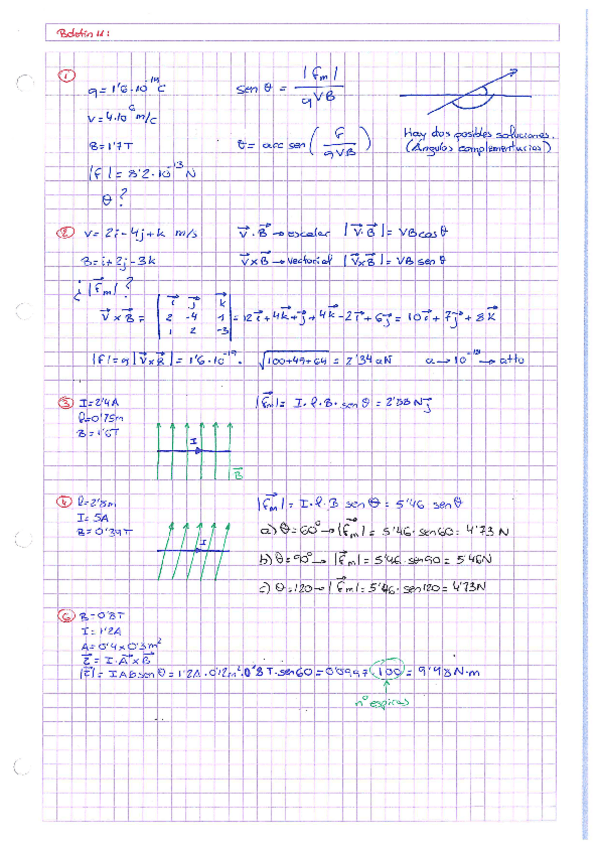 Boletín 4:
① q = 1'6·10⁻¹⁹ C
v = 4·10⁶ m/s
B = 1'7 T
|F| = 8'2·10⁻¹³ N
θ ?
sen θ = |Fm| / qVB
θ = arc sen ( F / qVB )
Hay dos posibles soluciones.
(Ángulos complementarios)
② v = 2i - 4j + k m/s
B = i + 2j - 3k
¿ |Fm| ?
V·B → escalar |V·B| = VB cos θ
V×B → vectorial |V×B| = VB sen θ
V×B = | i j k |
| 2 -4 1 |
| 1 2 -3 |
= 12i + 4k + j + 4k - 2i + 6j = 10i + 7j + 8k
|F| = q |V×B| = 1'6·10⁻¹⁹ · √100+49+64 = 2'34 aN a → 10⁻¹⁸ → atto
③ I = 2'4 A
l = 0'75 m
B = 1'6 T
|Fm| = I·l·B·sen θ = 2'88 N j
I
B
④ l = 2'8 m
I = 5A
B = 0'39 T
I
|Fm| = I·l·B sen θ = 5'46 sen θ
a) θ = 60° → |Fm| = 5'46·sen 60 = 4'73 N
b) θ = 90° → |Fm| = 5'46·sen 90 = 5'46 N
c) θ = 120 → |Fm| = 5'46·sen 120 = 4'73 N
⑥ B = 0'8 T
I = 1'2 A
A = 0'4 x 0'3 m²
τ = I·A×B
|τ| = I A B sen θ = 1'2A·0'12m²·0'8T·sen 60 = 0'0997·100 = 9'98 N·m
nº espiras